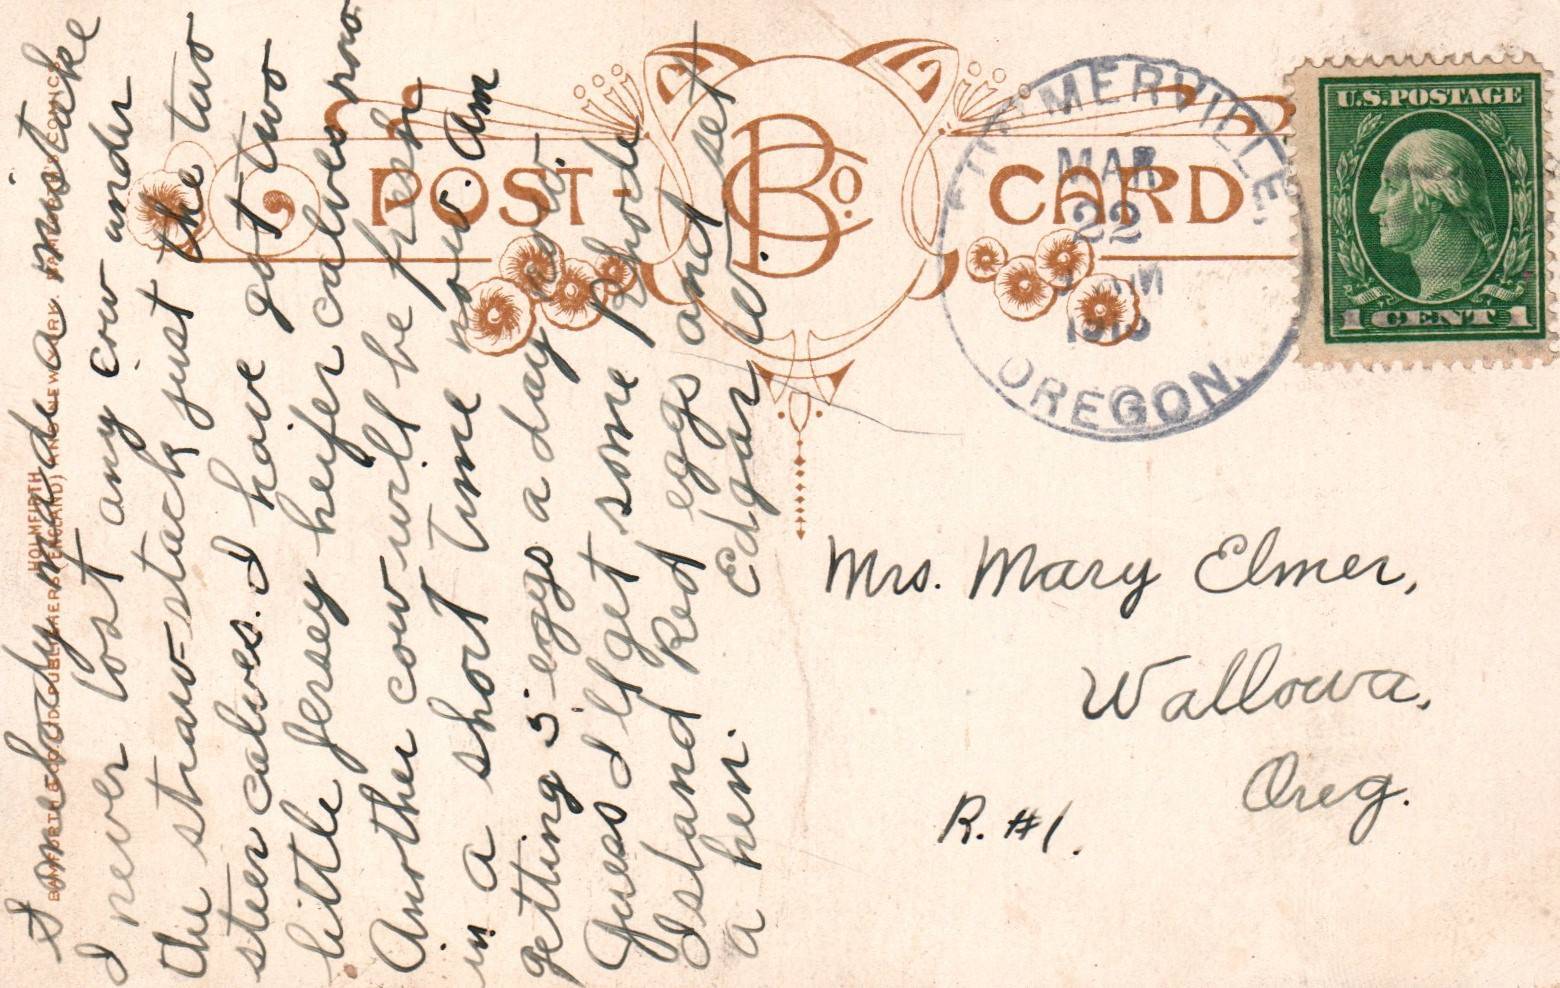 POST CARD
B Co.
MERVILLE
MAR
22
OREGON.
U.S. POSTAGE
1 CENT 1
HOLMFIRTH
BAMFORTH & CO. LTD PUBLISHERS (ENGLAND) AND NEW YORK.
Somebody made a mistake
I never lost any cow under
the straw-stack just the two
steer calves. I have got two
little Jersey heifer calves now
Another cow will be fresh
in a short time now. Am
getting 5 eggs a day now.
Guess I'll get some Rhode
Island Red eggs and set
a hen. Edgar W
Mrs. Mary Elmer,
Wallowa,
Oreg.
R. #1.